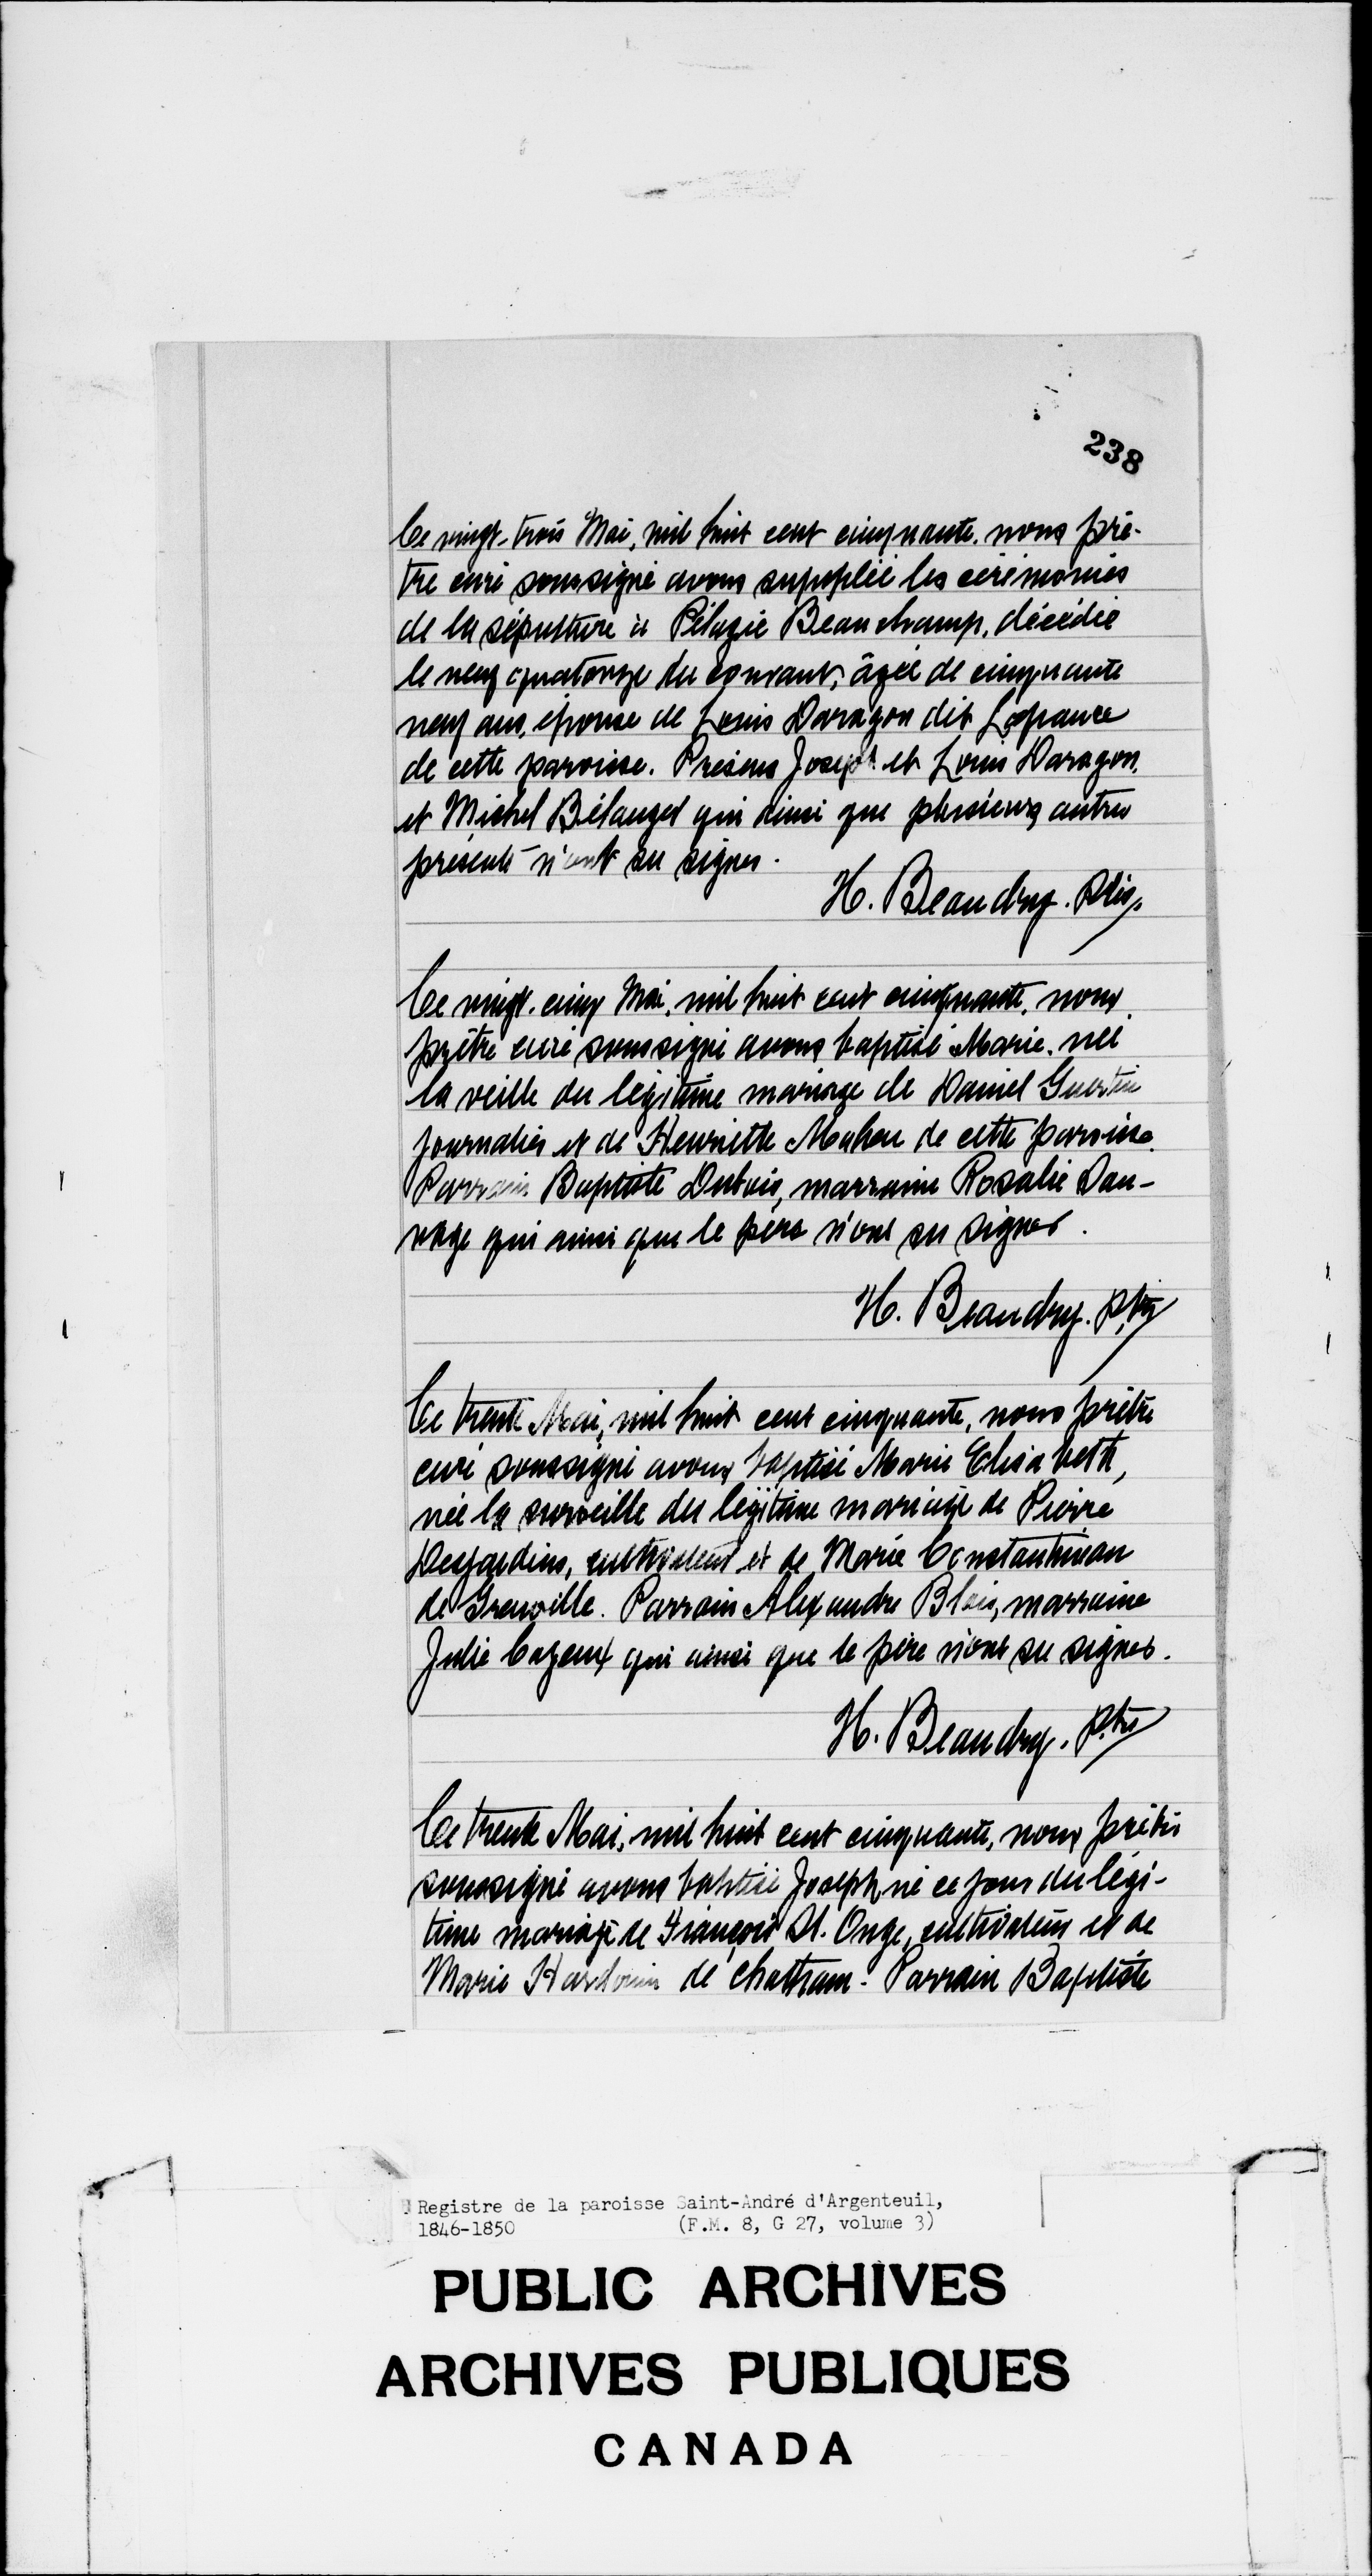 238
Ce vingt-trois Mai, mil huit cent cinquante, nous prê-
tre curé soussigné avons suppléé les cérémonies
de la sépulture à Pélagie Beauchamp, décédée
le neuf quatorze du courant, âgée de cinquante
neuf ans, épouse de Louis Daragon dit Lafrance
de cette paroisse. Présens Joseph et Louis Daragon,
et Michel Bélanger qui ainsi que plusieurs autres
présents n'ont su signer.
H. Beaudry. Ptre
Ce vingt-cinq Mai, mil huit cent cinquante, nous
prêtre curé soussigné avons baptisé Marie, née
la veille du légitime mariage de Daniel Guertin
journalier et de Henriette Maheu de cette paroisse.
Parrain Baptiste Dubois, marraine Rosalie
qui ainsi que le père n'ont su signer.
H. Beaudry. Ptre
Ce trente Mai, mil huit cent cinquante, nous prêtre
curé soussigné avons baptisé Marie Elisabeth,
née la surveille du légitime mariage de Pierre
Desjardins, cultivateur et de Marie Constantineau
de Grenville. Parrain Alexandre Blais, marraine
Julie Cayeux qui ainsi que le père n'ont su signer.
H. Beaudry. Ptre
Ce trente Mai, mil huit cent cinquante, nous prêtre
soussigné avons baptisé Joseph, né ce jour du légi-
time mariage de François St. Onge, cultivateur et de
Marie Hardouin de Chatham. Parrain Baptiste
Registre de la paroisse Saint-André d'Argenteuil,
1846-1850 (F.M. 8, G 27, volume 3)
PUBLIC ARCHIVES
ARCHIVES PUBLIQUES
CANADA